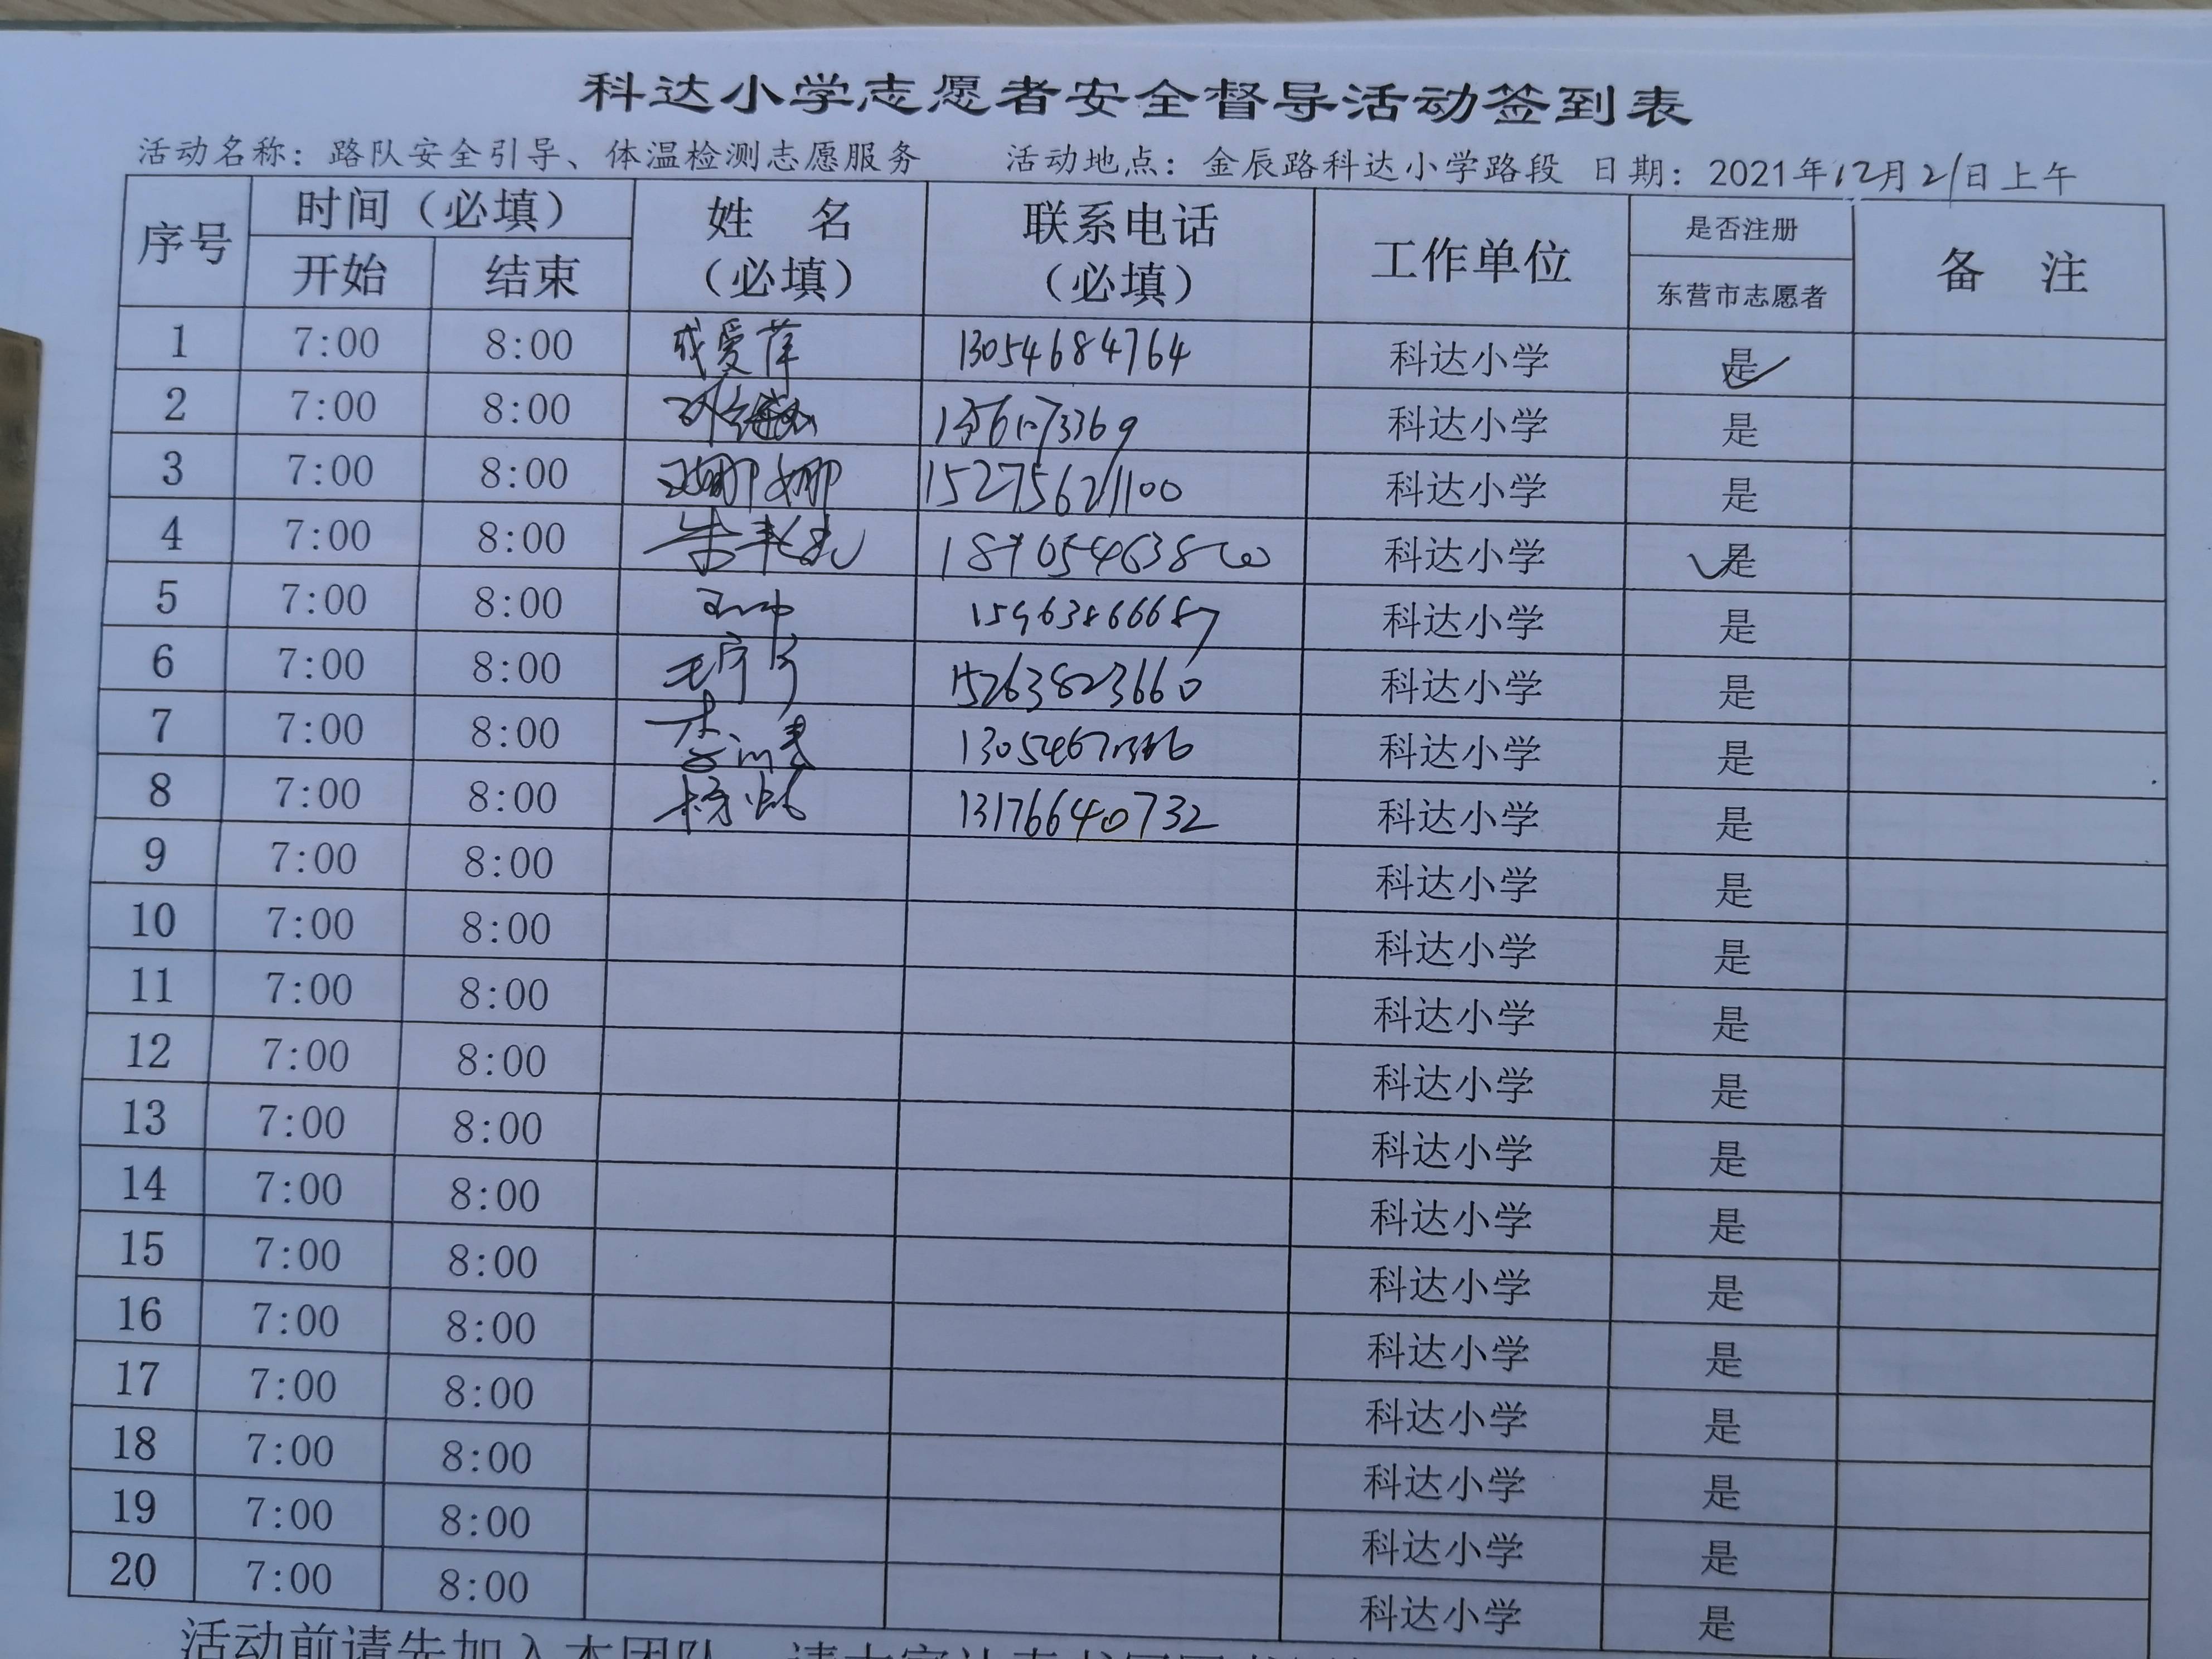 科达小学志愿者安全督导活动签到表
活动名称：路队安全引导、体温检测志愿服务 活动地点：金辰路科达小学路段 日期：2021年12月21日上午
序号 时间（必填） 姓 名（必填） 联系电话（必填） 工作单位 是否注册 备 注
开始 结束 东营市志愿者
1 7:00 8:00 成爱萍 13054684764 科达小学 是
2 7:00 8:00 科达小学 是
3 7:00 8:00 娜娜 15275621100 科达小学 是
4 7:00 8:00 科达小学 是
5 7:00 8:00 15963866687 科达小学 是
6 7:00 8:00 15263823660 科达小学 是
7 7:00 8:00 科达小学 是
8 7:00 8:00 杨 13176640732 科达小学 是
9 7:00 8:00 科达小学 是
10 7:00 8:00 科达小学 是
11 7:00 8:00 科达小学 是
12 7:00 8:00 科达小学 是
13 7:00 8:00 科达小学 是
14 7:00 8:00 科达小学 是
15 7:00 8:00 科达小学 是
16 7:00 8:00 科达小学 是
17 7:00 8:00 科达小学 是
18 7:00 8:00 科达小学 是
19 7:00 8:00 科达小学 是
20 7:00 8:00 科达小学 是
活动前请先加入本团队